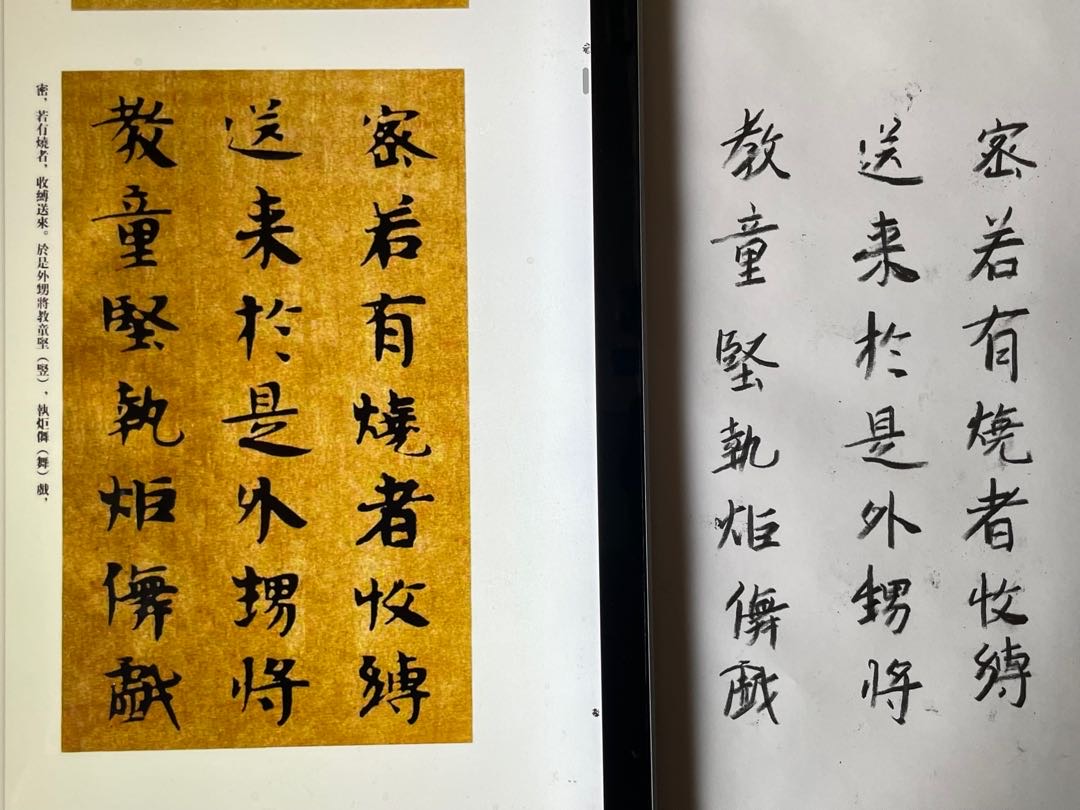 密若有燒者收縛
送来於是外甥將
教童堅執炬儛戲
密，若有燒者，收縛送來。於是外甥將教童堅（竪），執炬儛（舞）戲，
密若有燒者收縛
送来於是外甥將
教童堅執炬儛戲